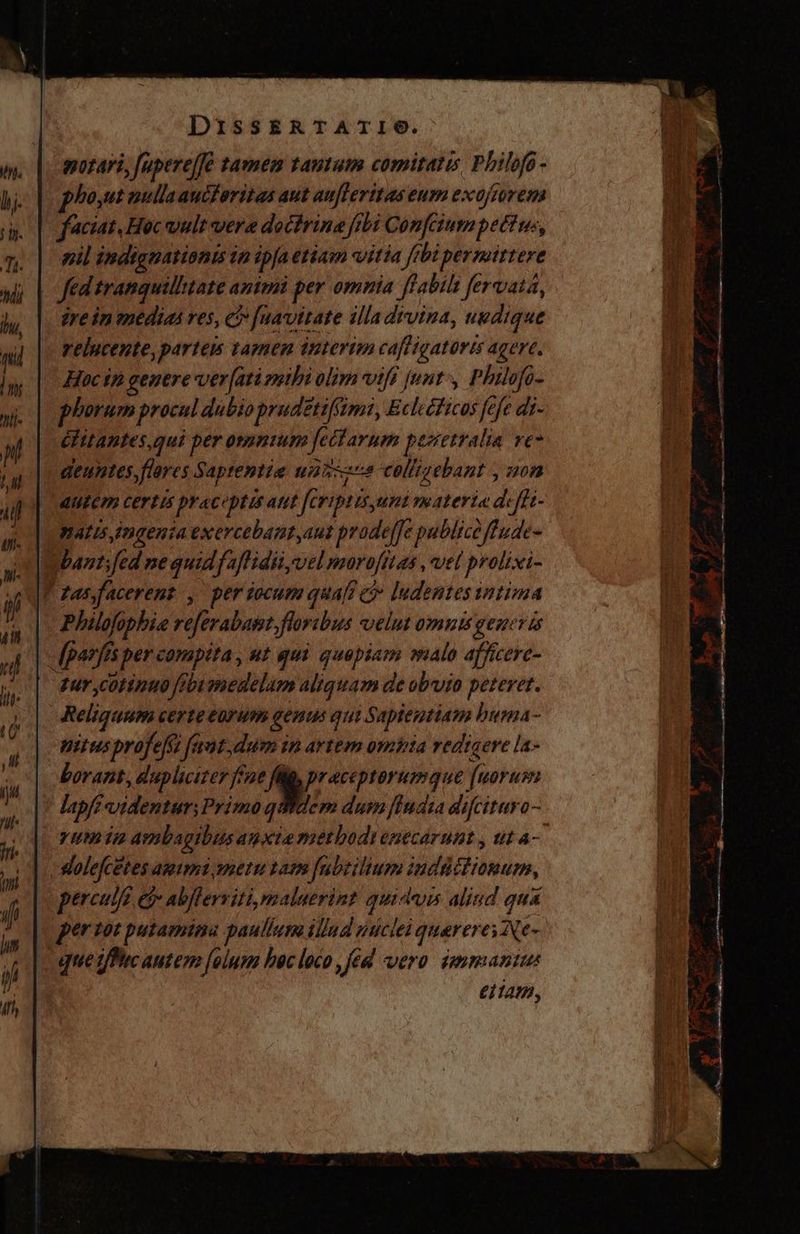 DISSERTATIO.
motari, ſupereſſe tamen tantum comitatis Philoſo-
pho, ut nulla auctoritas aut auſteritas eum exoſiorem
faciat. Hoc vult vere doctrina ſibi Conſcium pectus,
nil indignationis in ipſa etiam vitia ſibi permittere
ſed tranquillitate animi per omnia ſtabili ſervatâ,
ire in medias res, & ſuavitate illa divina, undique
relucente, parteis tamen interim caſtigatoris agere.
Hoc in genere verſati mihi olim viſi ſunt, Philoſo-
phorum procul dubio prudētiſſimi, Eclecticos ſeſe di-
ctitantes, qui per omnium ſectarum penetralia re-
deuntes, flores Sapientiæ colligebant, non
autem certis præceptis aut ſcriptis, uni materiæ deſti-
natis, ingenia exercebant, aut prodeſſe publicè ſtude-
bant; ſed ne quid faſtidii, vel moroſitas, vel prolixi-
tas, facerent, per iocum quaſi & ludentes intima
Philoſophiæ referabant, floribus velut omnis generis
ſparſis per compita, ut qui quopiam malo afficere-
tur, cōtinuo ſibi medelam aliquam de obvio peteret.
Reliquum certe eorum genus qui Sapientiam huma-
nitus profeſſi ſunt, dum in artem omnia redigere la-
borant, dupliciter ſine præceptorumque ſuorum
lapſi videntur; Primo quidem dum ſtudia diſcituro-
rum in ambagibus anxiæ methodi enecarunt, ut a-
doleſcētes animi metu tam ſubtilium inductionum,
perculſi & abſterriti, maluerint quidvis aliud quā
per tot putamina paullum illud nuclei quærere; Ne-
que iſtuc autem ſolum hoc loco, ſed vero immanius
etiam,